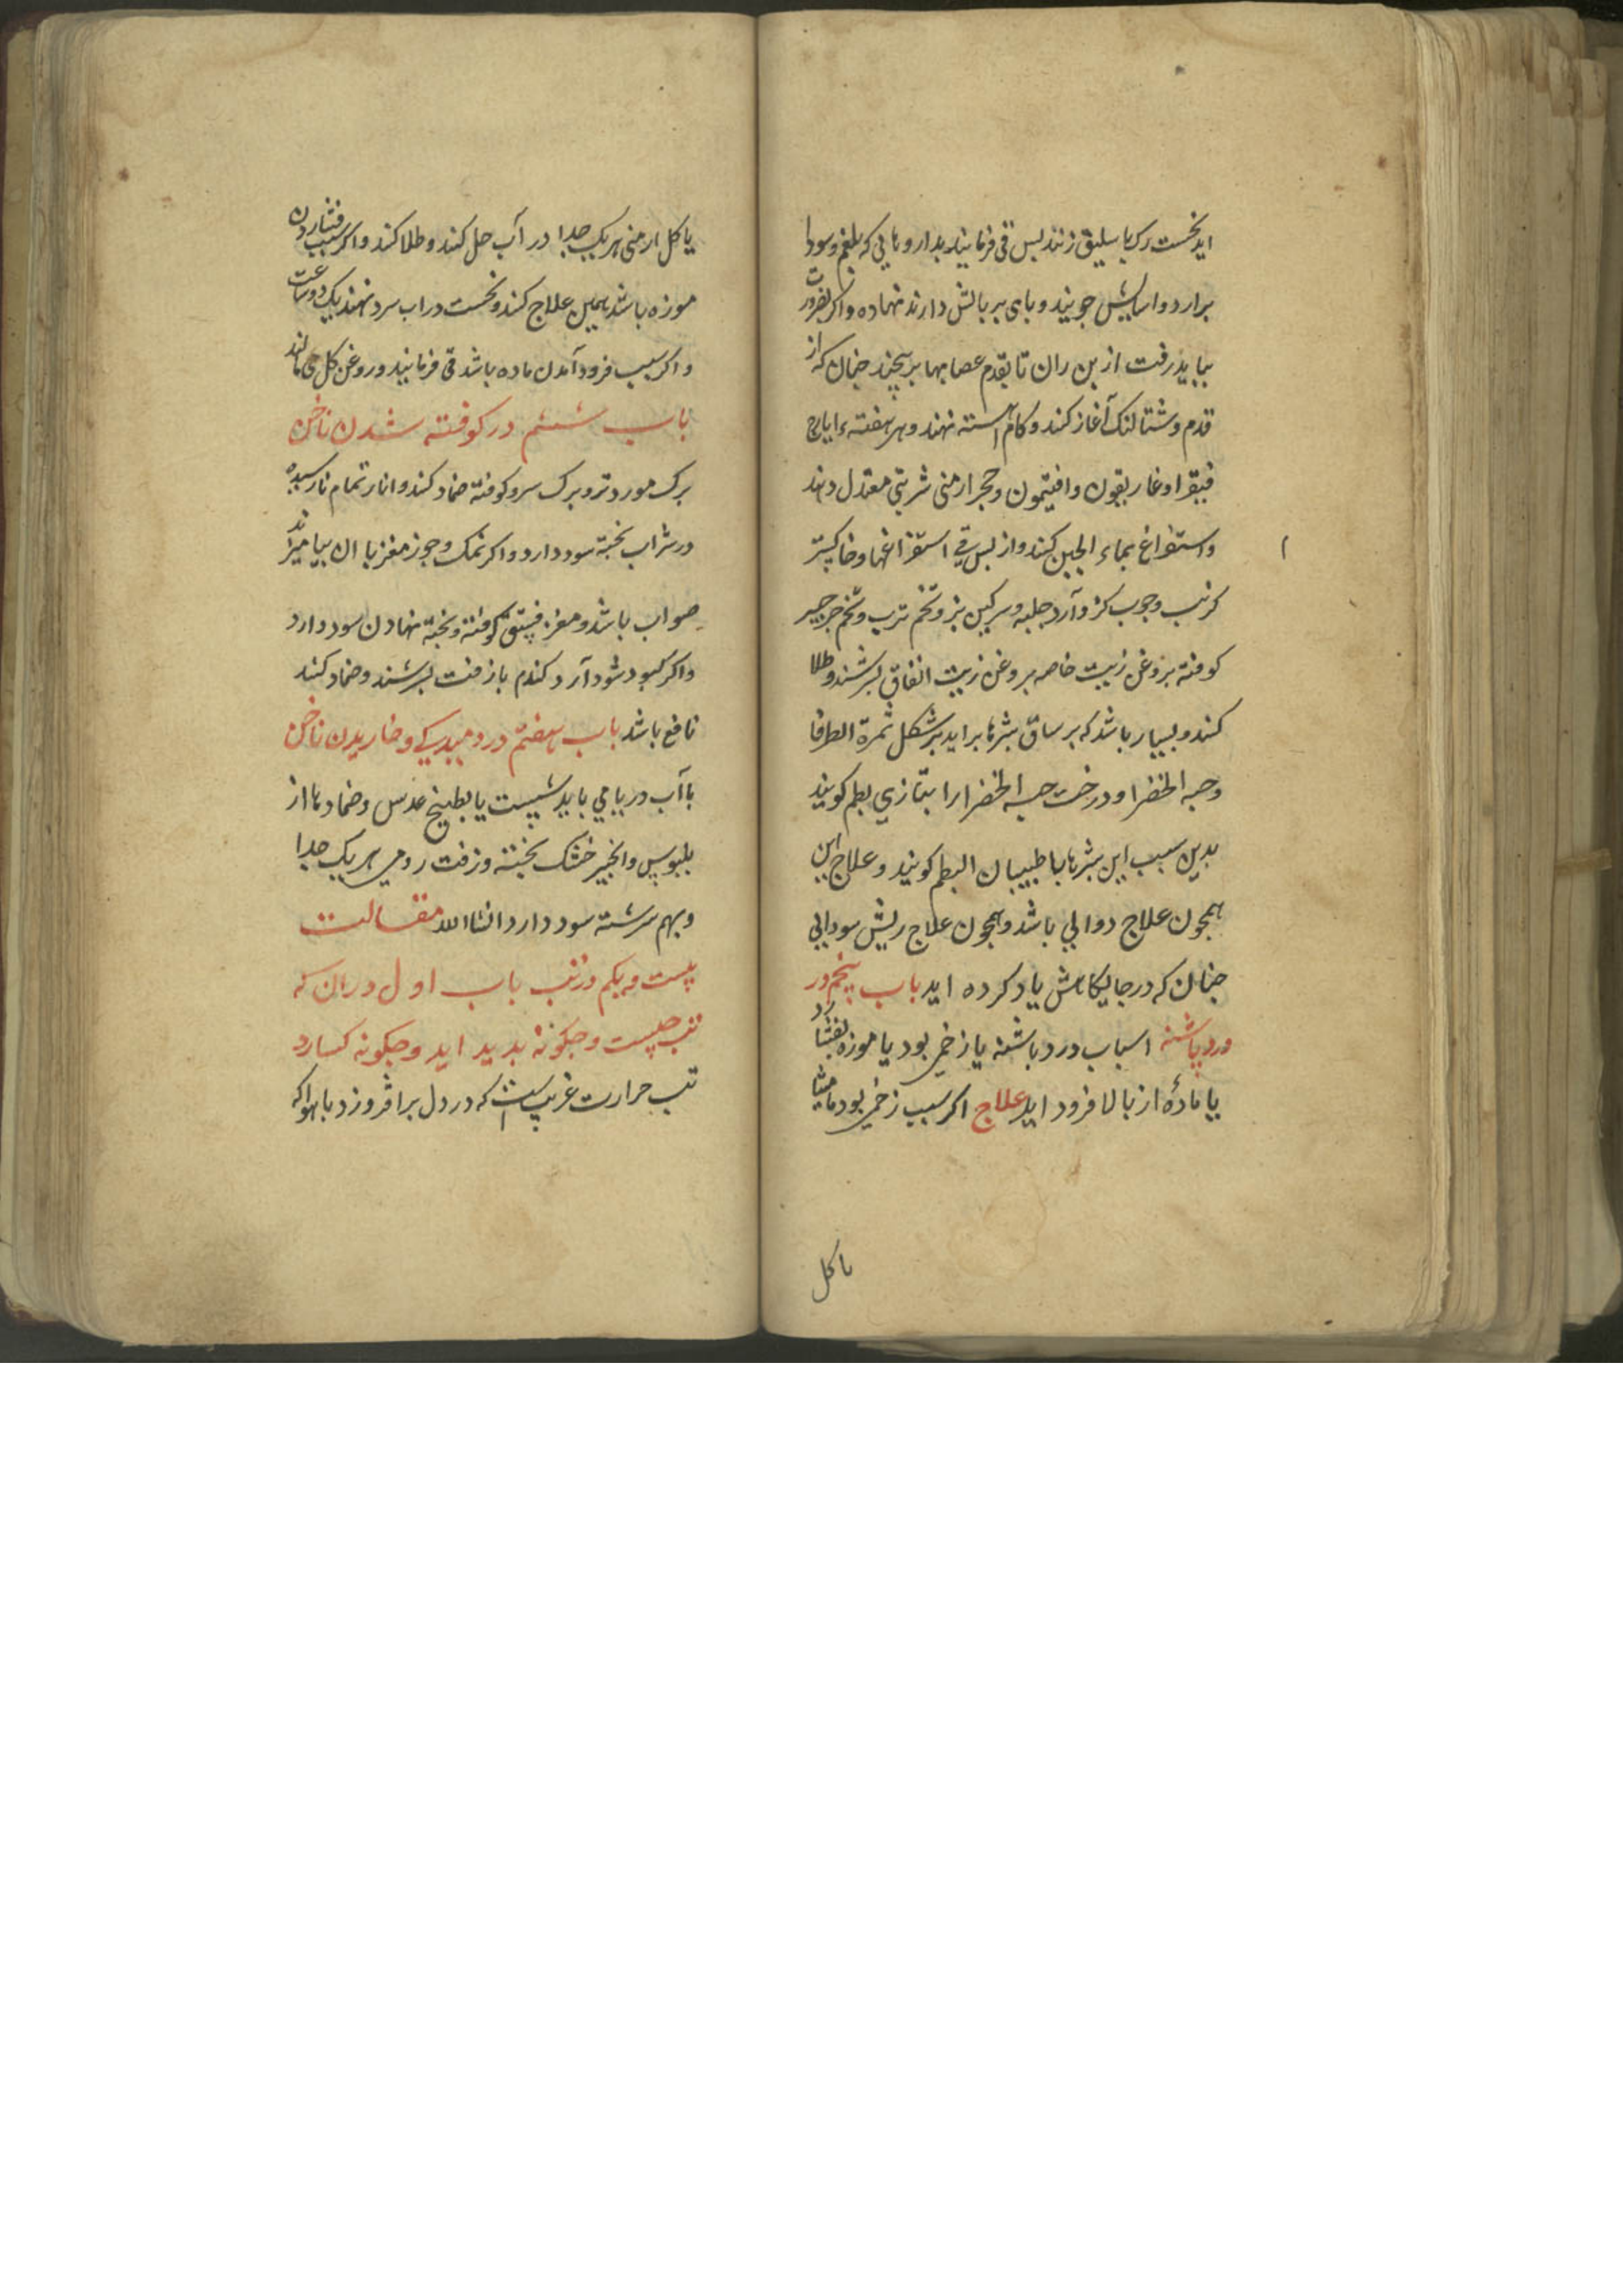 اید نخست رک باسلیق زنند بس قی فرمایند بداروهایی که بلغم و سودا
برارد و اسایش جویند و بای بر بالش دارند نهاده و اکر بضرورت
بباید رفت از بن ران تا بقدم عصابها بر بیچند جنان که از
قدم و شتالنک آغاز کند و کام آهسته نهند و هر هفتهء ایارج
فیقرا و غاریقون و افتیمون و حجر ارمنی شربتی معتدل دهند
و استفراغ بماء الجبن کنند و از بس قی استفراغها و خاکستر
کرنب و جوب کز و آرد حلبه و سرکین بز و تخم ترب و تخم جرجیر
کوفته بروغن زیت خاصه بروغن زیت انفاق بسرشند و طلا
کنند و بسیار باشد که بر ساق بثرها براید بر شکل ثمرة الطرفا
و حبه الخضرا و درخت حبه الخضرا را بتازی بطم کویند
بدین سبب این بثرها را طبیبان البطم کویند و علاج این
همجون علاج دوالی باشد و همجون علاج ریش سودایی
جنان که در جایکاهش یاد کرده اید باب پنجم در
درد پاشنه اسباب درد باشنه یا زخمی بود یا موزه بفشارد
یا مادهٔ از بالا فرود اید علاج اکر سبب زخمی بود مامیثا
یا کل
یا کل ارمنی هر یک جدا در آب حل کند و طلا کند و اکر سبب فشاردن
موزه باشد همین علاج کند و نخست در اب سرد نهند یک دو ساعت
و اکر سبب فرود آمدن ماده باشد قی فرمایند و روغن کل می مالند
باب ششم در کوفته شدن ناخن
برک مورد تر و برک سرو کوفته ضماد کند و انار تمام نارسیده
در شراب بخته سود دارد و اکر نمک و جوز مغز با ان بیامیزند
صواب باشد و مغز فستق کوفته و بخته نهادن سود دارد
و اکر کبود شود آرد کندم با زفت بسرشند و ضماد کنند
نافع باشد باب هفتم در دمیدکی و خاریدن ناخن
با آب دریا می باید شست یا بطبیخ عدس و ضمادها از
بلبوس و انجیر خشک بخته و زفت رومی هر یک جدا
و بهم سرشته سود دارد انشاالله مقالت
بیست و یکم در تب باب اول در ان که
تب جیست و جکونه بدید اید و جکونه کسارد
تب حرارت غریب است که در دل برافروزد با هوا که